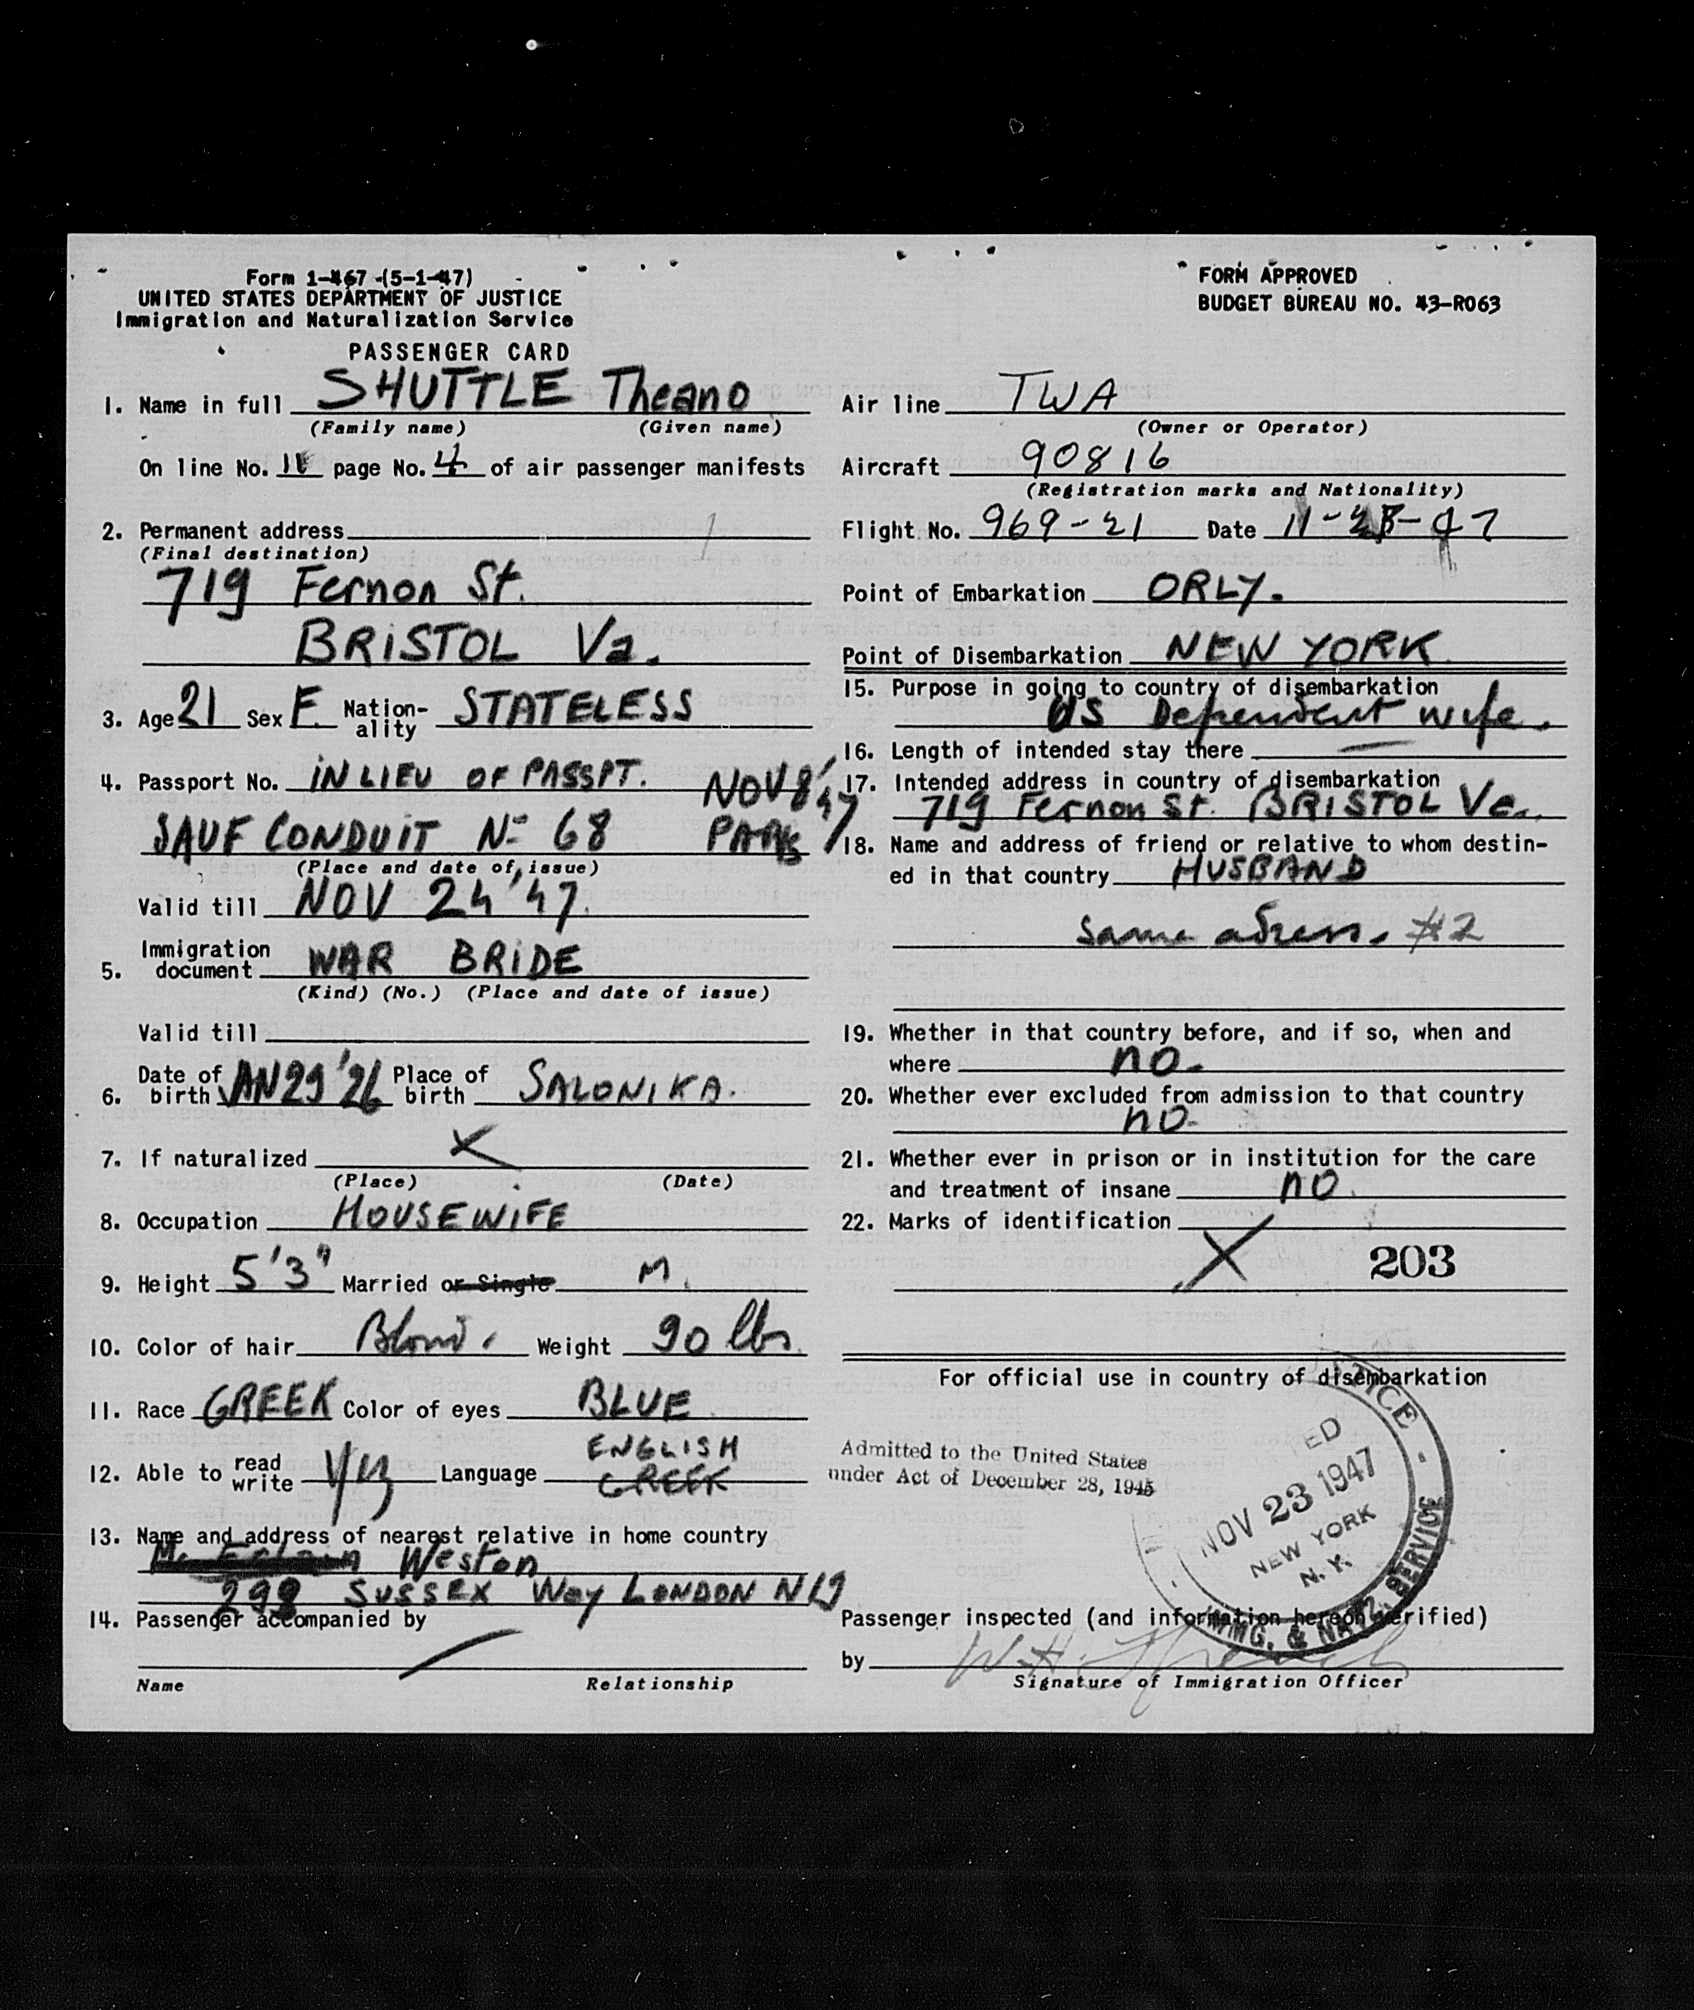 Form 1-467 (5-1-47)
UNITED STATES DEPARTMENT OF JUSTICE
Immigration and Naturalization Service
PASSENGER CARD
FORM APPROVED
BUDGET BUREAU NO. 43-R063
1. Name in full SHUTTLE Theano
(Family name) (Given name)
On line No. page No. 4 of air passenger manifests
2. Permanent address
(Final destination)
719 Fernon St.
BRISTOL Va.
3. Age 21 Sex F. Nation-ality STATELESS
4. Passport No. IN LIEU OF PASSPT. NOV 8 '47
SAUF CONDUIT No 68 PARIS
(Place and date of issue)
Valid till NOV 24 '47.
5. Immigration document WAR BRIDE
(Kind) (No.) (Place and date of issue)
Valid till
6. Date of birth JAN 29 '26 Place of birth SALONIKA.
7. If naturalized X
(Place) (Date)
8. Occupation HOUSEWIFE
9. Height 5'3" Married or Single M.
10. Color of hair Blond. Weight 90 lbs.
11. Race GREEK Color of eyes BLUE
12. Able to read write yes Language ENGLISH GREEK
13. Name and address of nearest relative in home country
Weston
298 SUSSEX Way LONDON N19
14. Passenger accompanied by
Name Relationship
Air line TWA
(Owner or Operator)
Aircraft 90816
(Registration marks and Nationality)
Flight No. 969-21 Date 11-23-47
Point of Embarkation ORLY.
Point of Disembarkation NEW YORK
15. Purpose in going to country of disembarkation
US Dependent wife.
16. Length of intended stay there —
17. Intended address in country of disembarkation
719 Fernon St. BRISTOL Va.
18. Name and address of friend or relative to whom destin-
ed in that country HUSBAND
same adress. #2
19. Whether in that country before, and if so, when and
where no.
20. Whether ever excluded from admission to that country
no.
21. Whether ever in prison or in institution for the care
and treatment of insane no.
22. Marks of identification
X 203
For official use in country of disembarkation
Admitted to the United States
under Act of December 28, 1945
STICE
ED
NOV 23 1947
NEW YORK
N. Y.
IMMG. & NATZ. SERVICE
Passenger inspected (and information hereon verified)
by
Signature of Immigration Officer